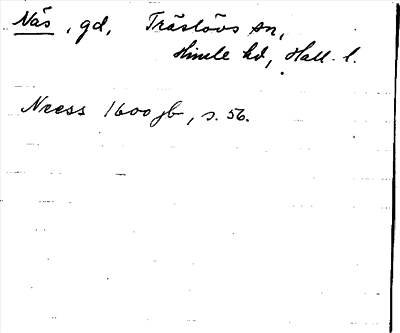 Näs, gd, Träslövs sn,
Himle hd, Hall. l.
Næss 1600 jb, s. 56.